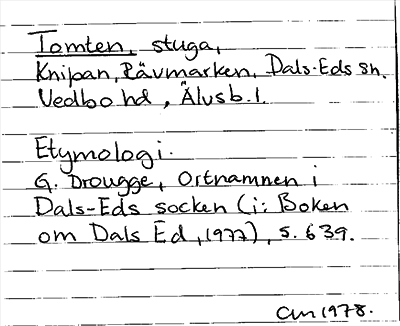 Tomten, stuga,
Knipan, Rävmarken, Dals-Eds sn.
Vedbo hd, Älvsb. l.
Etymologi.
G. Drougge, Ortnamnen i
Dals-Eds socken (i: Boken
om Dals Ed, 1977), s. 639.
CM 1978.